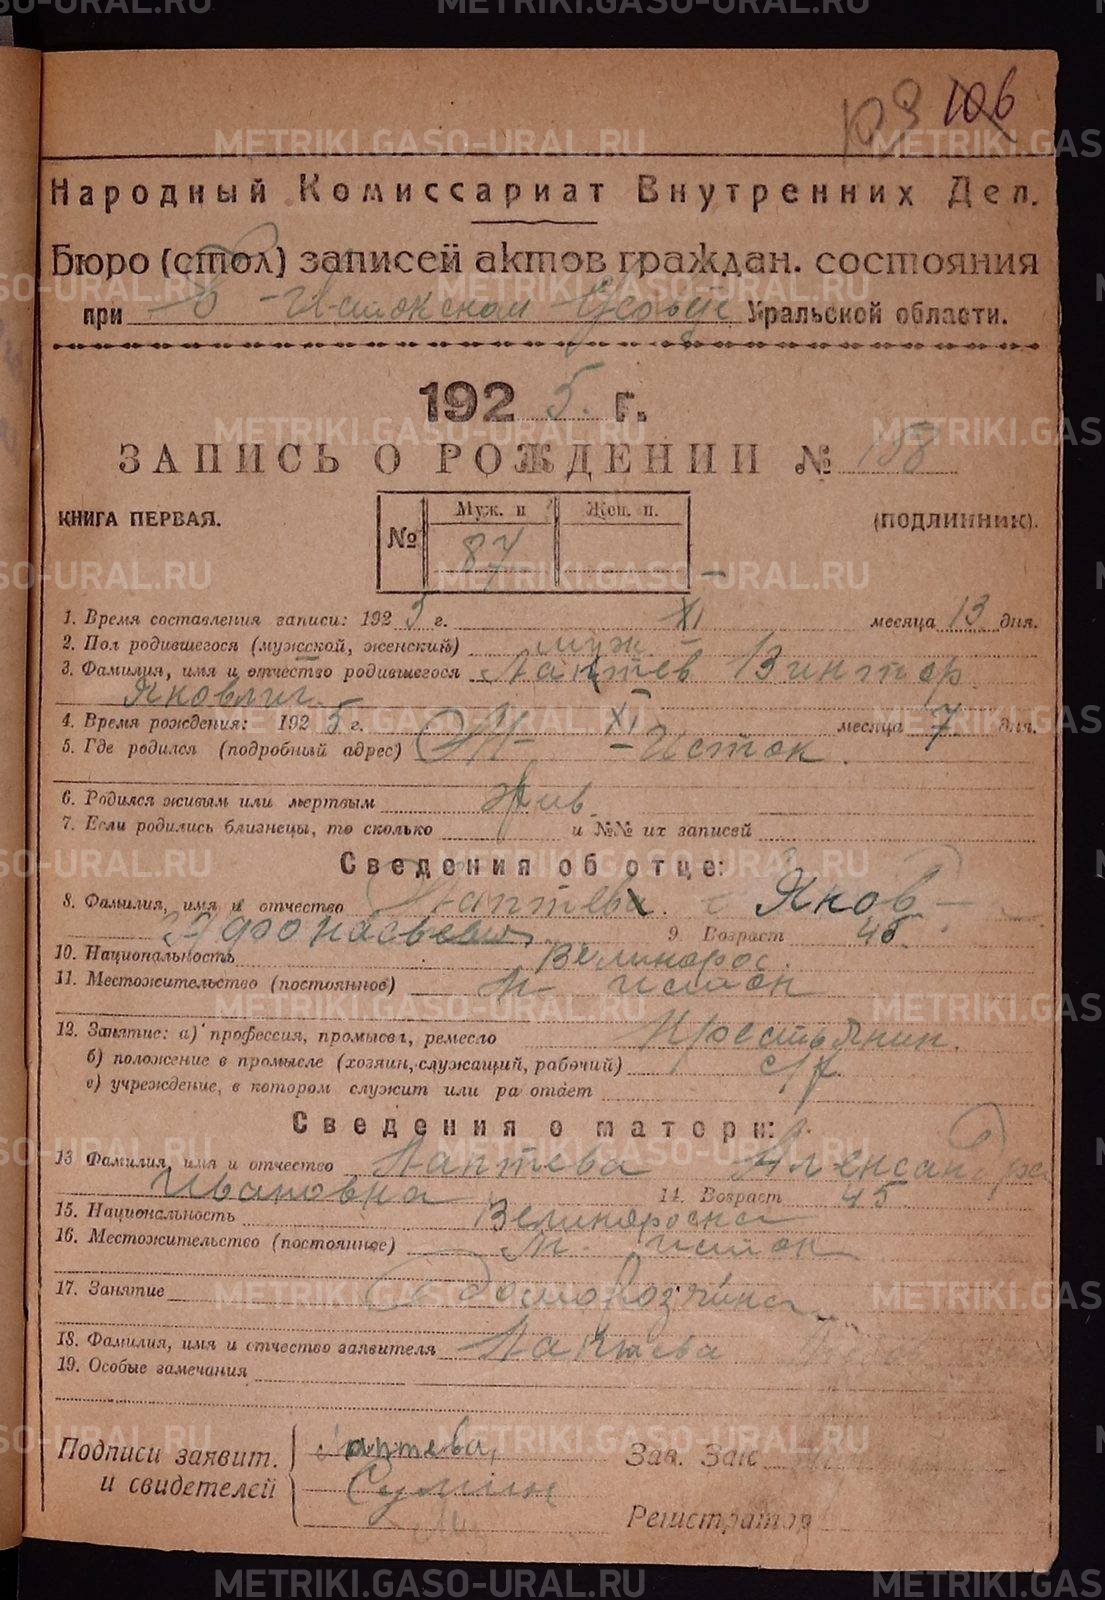 109 106
Народный Комиссариат Внутренних Дел.
Бюро (стол) записей актов граждан. состояния
при Б-Истокском Уральской области.
1925 г.
ЗАПИСЬ О РОЖДЕНИИ № 158
КНИГА ПЕРВАЯ.
№ Муж. п Жен. п.
87
(ПОДЛИННИК).
1. Время составления записи: 1925 г. XI месяца 13 дня.
2. Пол родившегося (мужской, женский) муж.
3. Фамилия, имя и отчество родившегося Лаптев Виктор
Яковлич.
4. Время рождения: 1925 г. XI месяца 7 дня.
5. Где родился (подробный адрес) М-Исток.
6. Родился живым или мертвым Жив.
7. Если родились близнецы, то сколько и №№ их записей
Сведения об отце:
8. Фамилия, имя и отчество Лаптев Яков
Афонасьевич 9. Возраст 45
10. Национальность Великорос.
11. Местожительство (постоянное) М-исток
12. Занятие: а) профессия, промысел, ремесло Крестьянин.
б) положение в промысле (хозяин, служащий, рабочий)
в) учреждение, в котором служит или ра отает
Сведения о матери:
13 Фамилия, имя и отчество Лаптева Александра
Ивановна 14. Возраст 45
15. Национальность Великороска
16. Местожительство (постоянное) М. исток
17. Занятие домохозяйка
18. Фамилия, имя и отчество заявителя Лаптева
19. Особые замечания
Подписи заявит. Лаптева, Зав. Загс
и свидетелей
Регистратор
METRIKI.GASO-URAL.RU